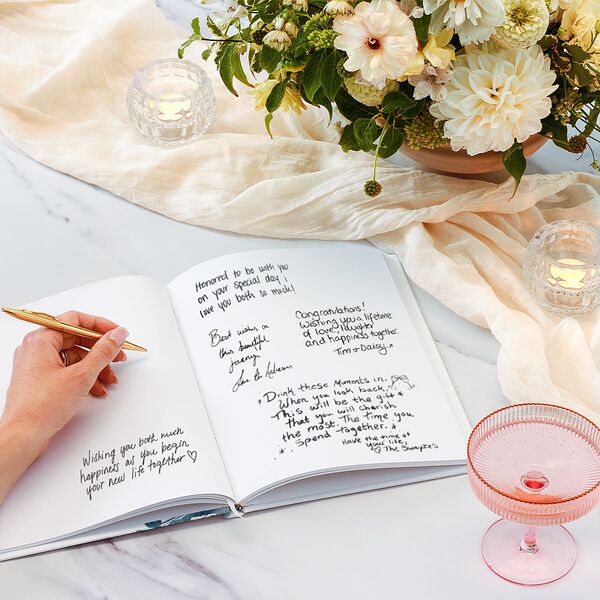 Wishing you both much
happiness as you begin
your new life together ♡
Honored to be with you
on your special day!
love you both so much!
Best wishes on
this beautiful
journey
Love
Congratulations!
Wishing you a lifetime
of love, laughter
and happiness together.
Tim + Daisy x
Drink these moments in.
When you look back,
This will be the gift
that you will cherish
the most. The time you
spend together.
Have the time of
your life,
♡ The Swayzes